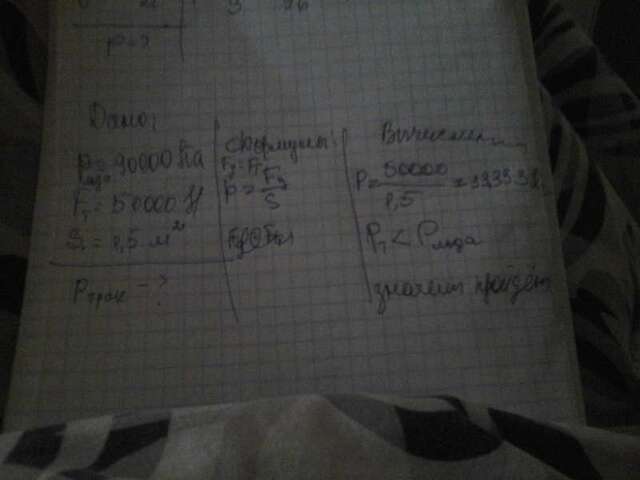 p=?
Дано:
Pльда = 90000 Па
Fт = 50000 Н
S = 1,5 м²
Pтрак - ?
Формулы:
Fg = Fт
P = Fg/S
Вычислен
P = 50000/1,5 = 33333
Pт < Pльда
значит пройдёт